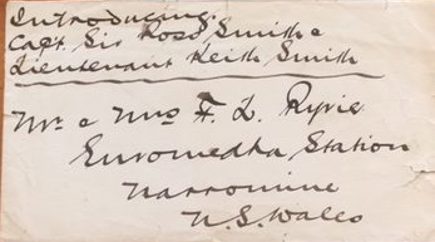 Introducing.
Capt. Sir Ross Smith &
Lieutenant Keith Smith
Mr. & Mrs F. L. Ryrie
Euromedha Station
Narromine
N.S.Wales